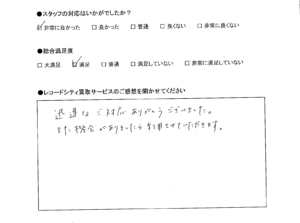 ●スタッフの対応はいかがでしたか？
☑非常に良かった □良かった □普通 □良くない □非常に良くない
●総合満足度
□大満足 ☑満足 □普通 □満足していない □非常に満足していない
●レコードシティ買取サービスのご感想を聞かせてください
迅速なご対応ありがとうございました。
また機会がありましたら利用させていただきます。